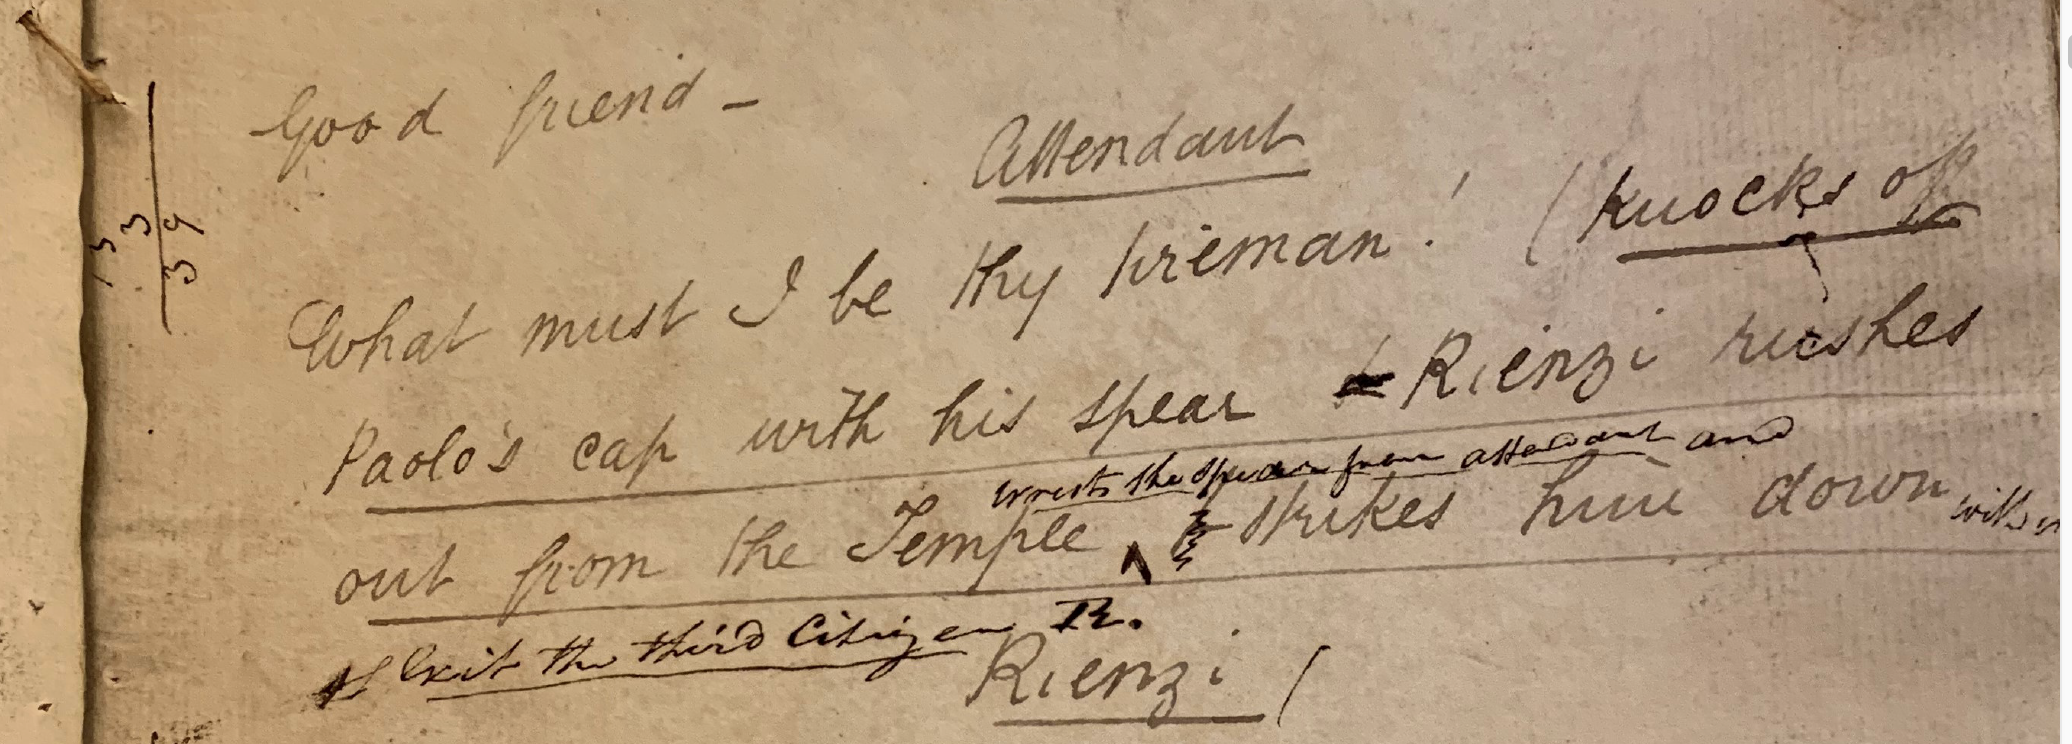 Good friend –
Attendant
What must I be thy fireman! (knocks off
Paolo's cap with his spear Rienzi rushes
wrests the spear from attendant and
out from the Temple strikes him down with
Exit the third Citizen R.
Rienzi (
13
3
39